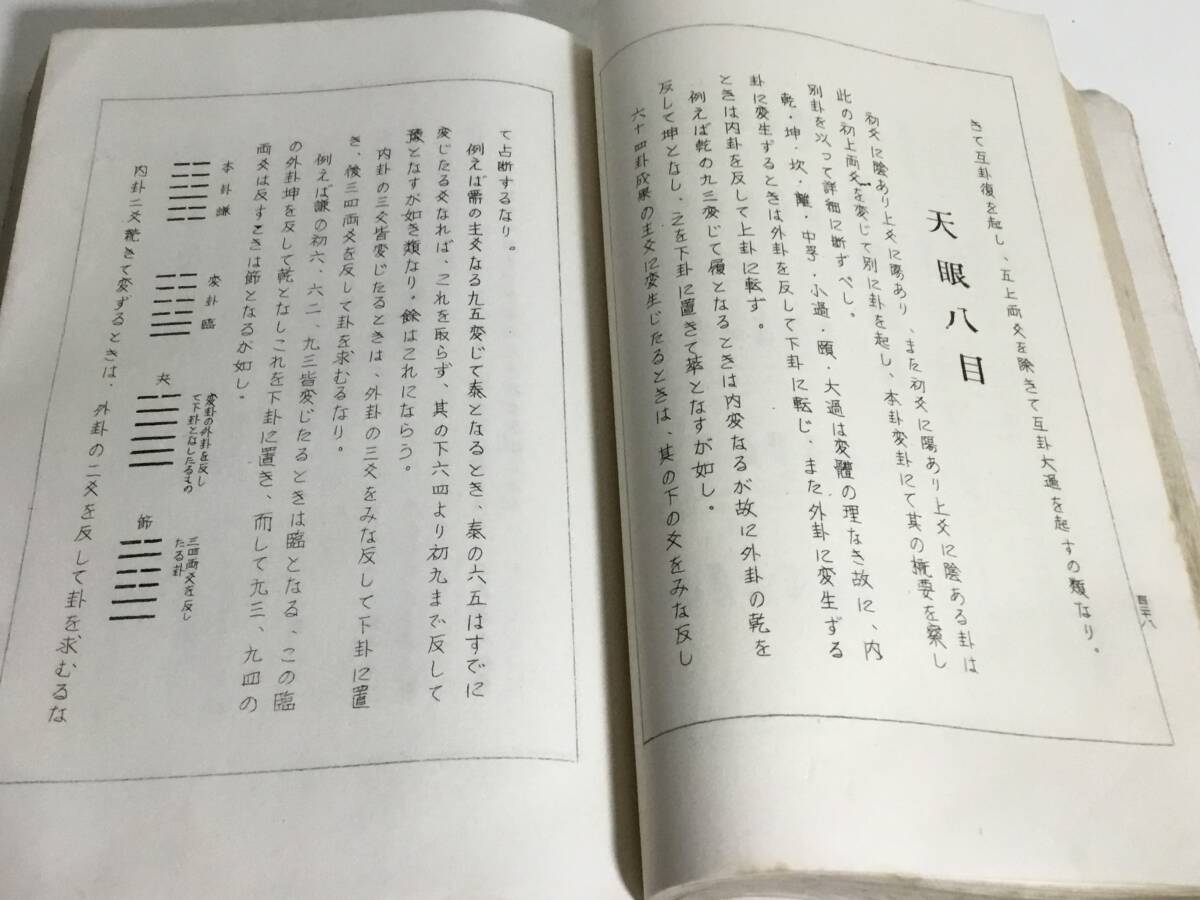 きて互卦復を起し、五上両爻を除きて互卦大過を起すの類なり。
天眼八目
初爻に陰あり上爻に陽あり、また初爻に陽あり上爻に陰ある卦は
此の初上両爻を変じて別に卦を起し、本卦変卦にて其の概要を察し
別卦を以って詳細に断ずべし。
乾・坤・坎・離・中孚・小過・頤・大過は変體の理なき故に、内
卦に変生ずるときは外卦を反して下卦に転じ、また外卦に変生ずる
ときは内卦を反して上卦に転ず。
例えば乾の九三変じて履となるときは内変なるが故に外卦の乾を
反して坤となし、之を下卦に置きて萃となすが如し。
六十四卦成果の主爻に変生じたるときは、其の下の爻をみな反し
て占断するなり。
例えば需の主爻なる九五変じて泰となるとき、泰の六五はすでに
変じたる爻なれば、これを取らず、其の下六四より初九まで反して
豫となすが如き類なり。餘はこれにならう。
内卦の三爻皆変じたるときは、外卦の三爻をみな反して下卦に置
き、後三四両爻を反して卦を求むるなり。
例えば謙の初六、六二、九三皆変じたるときは臨となる、この臨
の外卦坤を反して乾となしこれを下卦に置き、而して九三、九四の
両爻は反すときは節となるが如し。
本卦謙
変卦臨
夬
変卦の外卦を反し
て下卦となしたるもの
節
三四両爻を反し
たる卦
内卦二爻続きて変ずるときは、外卦の二爻を反して卦を求むるな